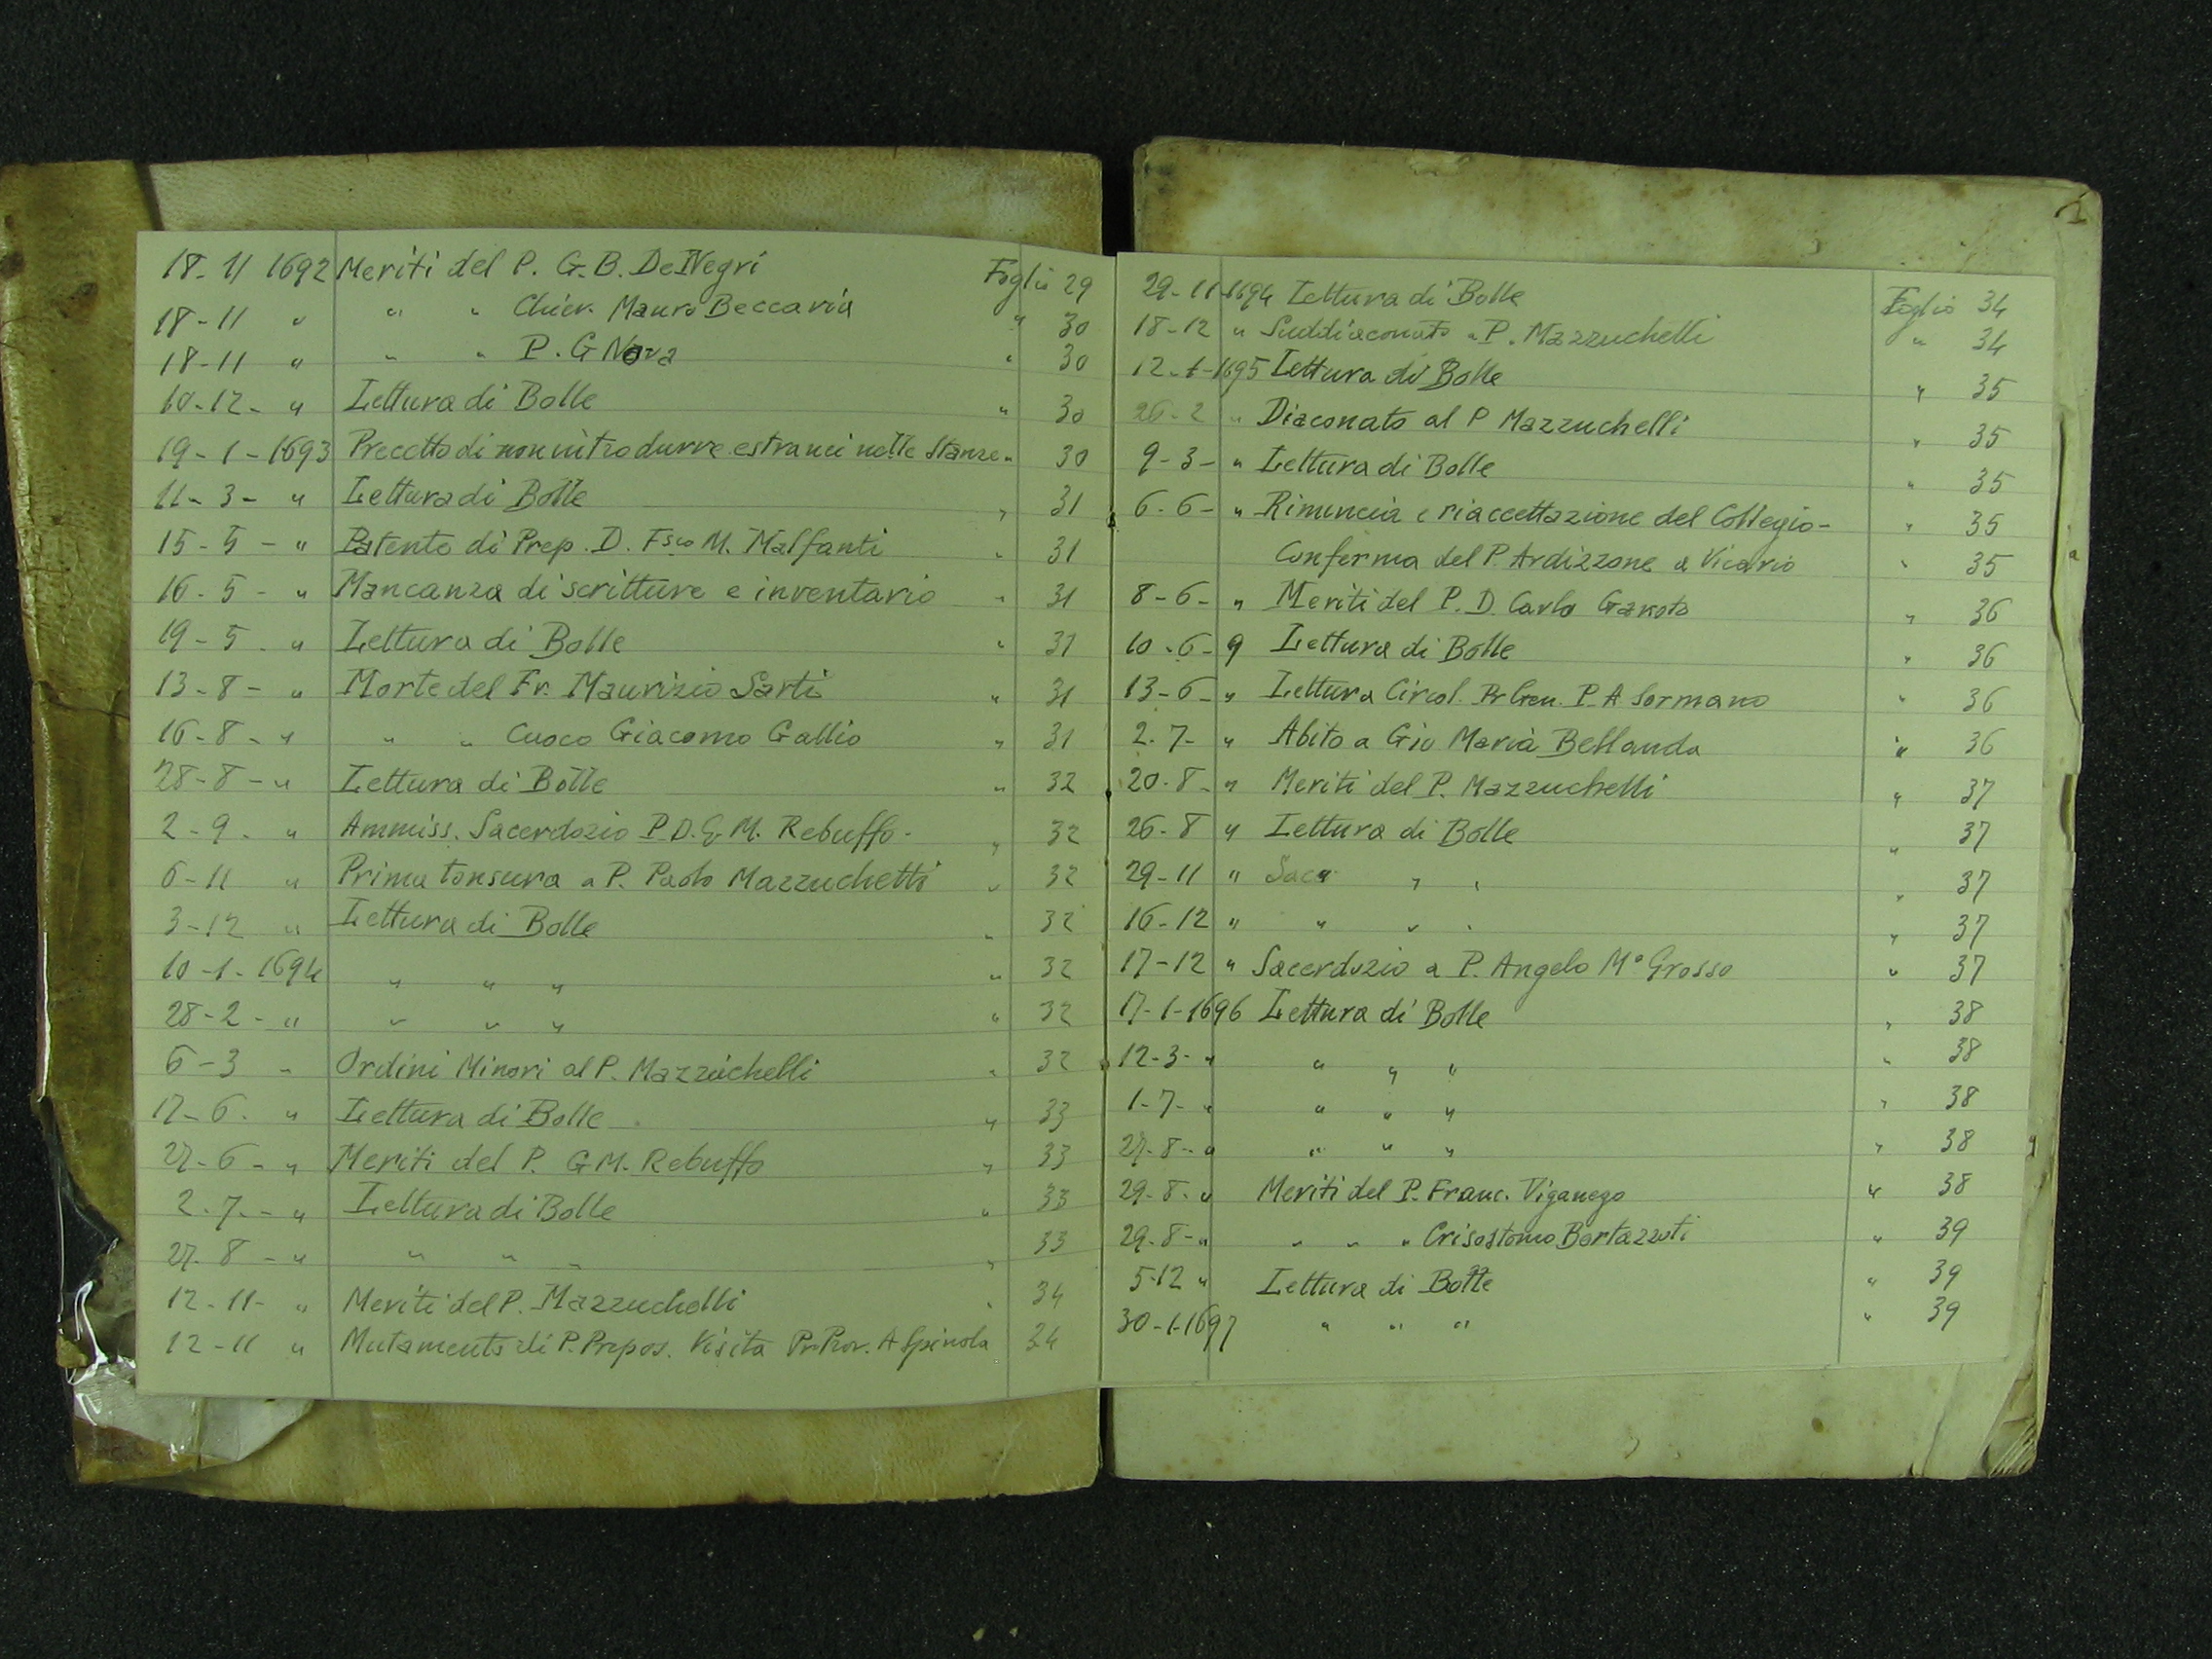 18-11 1692 Meriti del P. G. B. DeNegri Foglio 29
18-11 " " " Chier. Mauro Beccaria " 30
18-11 " " " P. G Nova " 30
10-12- " Lettura di Bolle " 30
19-1-1693 Precetto di non introdurre estranei nelle stanze " 30
11-3- " Lettura di Bolle " 31
15-5- " Patente di Prep. D. Fsco M. Malfanti " 31
16-5- " Mancanza di scritture e inventario " 31
19-5- " Lettura di Bolle " 31
13-8- " Morte del Fr. Maurizio Sarti " 31
16-8- " " " Cuoco Giacomo Gallio " 31
28-8- " Lettura di Bolle " 32
2-9- " Ammiss. Sacerdozio P. D. G. M. Rebuffo- " 32
6-11 " Prima tonsura a P. Paolo Mazzuchelli " 32
3-12 " Lettura di Bolle " 32
10-1-1694 " " " " 32
28-2- " " " " " 32
6-3 " Ordini Minori al P. Mazzuchelli " 32
17-6- " Lettura di Bolle " 33
27-6- " Meriti del P. G M. Rebuffo " 33
2-7- " Lettura di Bolle " 33
27-8- " " " " " 33
12-11- " Meriti del P. Mazzuchelli " 34
12-11 " Mutamento di P. Prepos. Visita Pr. Prov. A Spinola 34
29-11-1694 Lettura di Bolle Foglio 34
18-12 " Suddiaconato " P. Mazzuchelli " 34
12-1-1695 Lettura di Bolle " 35
26-2 " Diaconato al P Mazzuchelli " 35
9-3- " Lettura di Bolle " 35
6-6- " Rinuncia e riaccettazione del Collegio- " 35
Conferma del P. Ardizzone a Vicario " 35
8-6- " Meriti del P. D. Carlo " 36
10-6- 9 Lettura di Bolle " 36
13-6- " Lettura Circol. Pr Gen. P. A Sormano " 36
2-7- " Abito a Gio Maria Bellanda " 36
20-8- " Meriti del P. Mazzuchelli " 37
26-8 " Lettura di Bolle " 37
29-11 " " " " 37
16-12 " " " " " 37
17-12 " Sacerdozio a P. Angelo Mº Grosso " 37
17-1-1696 Lettura di Bolle " 38
12-3- " " " " " 38
1-7- " " " " " 38
27-8- " " " " " 38
29-8- " Meriti del P. Franc. Viganego " 38
29-8- " " " " Crisostomo Bertazzoti " 39
5-12 " Lettura di Bolle " 39
30-1-1697 " " " " 39